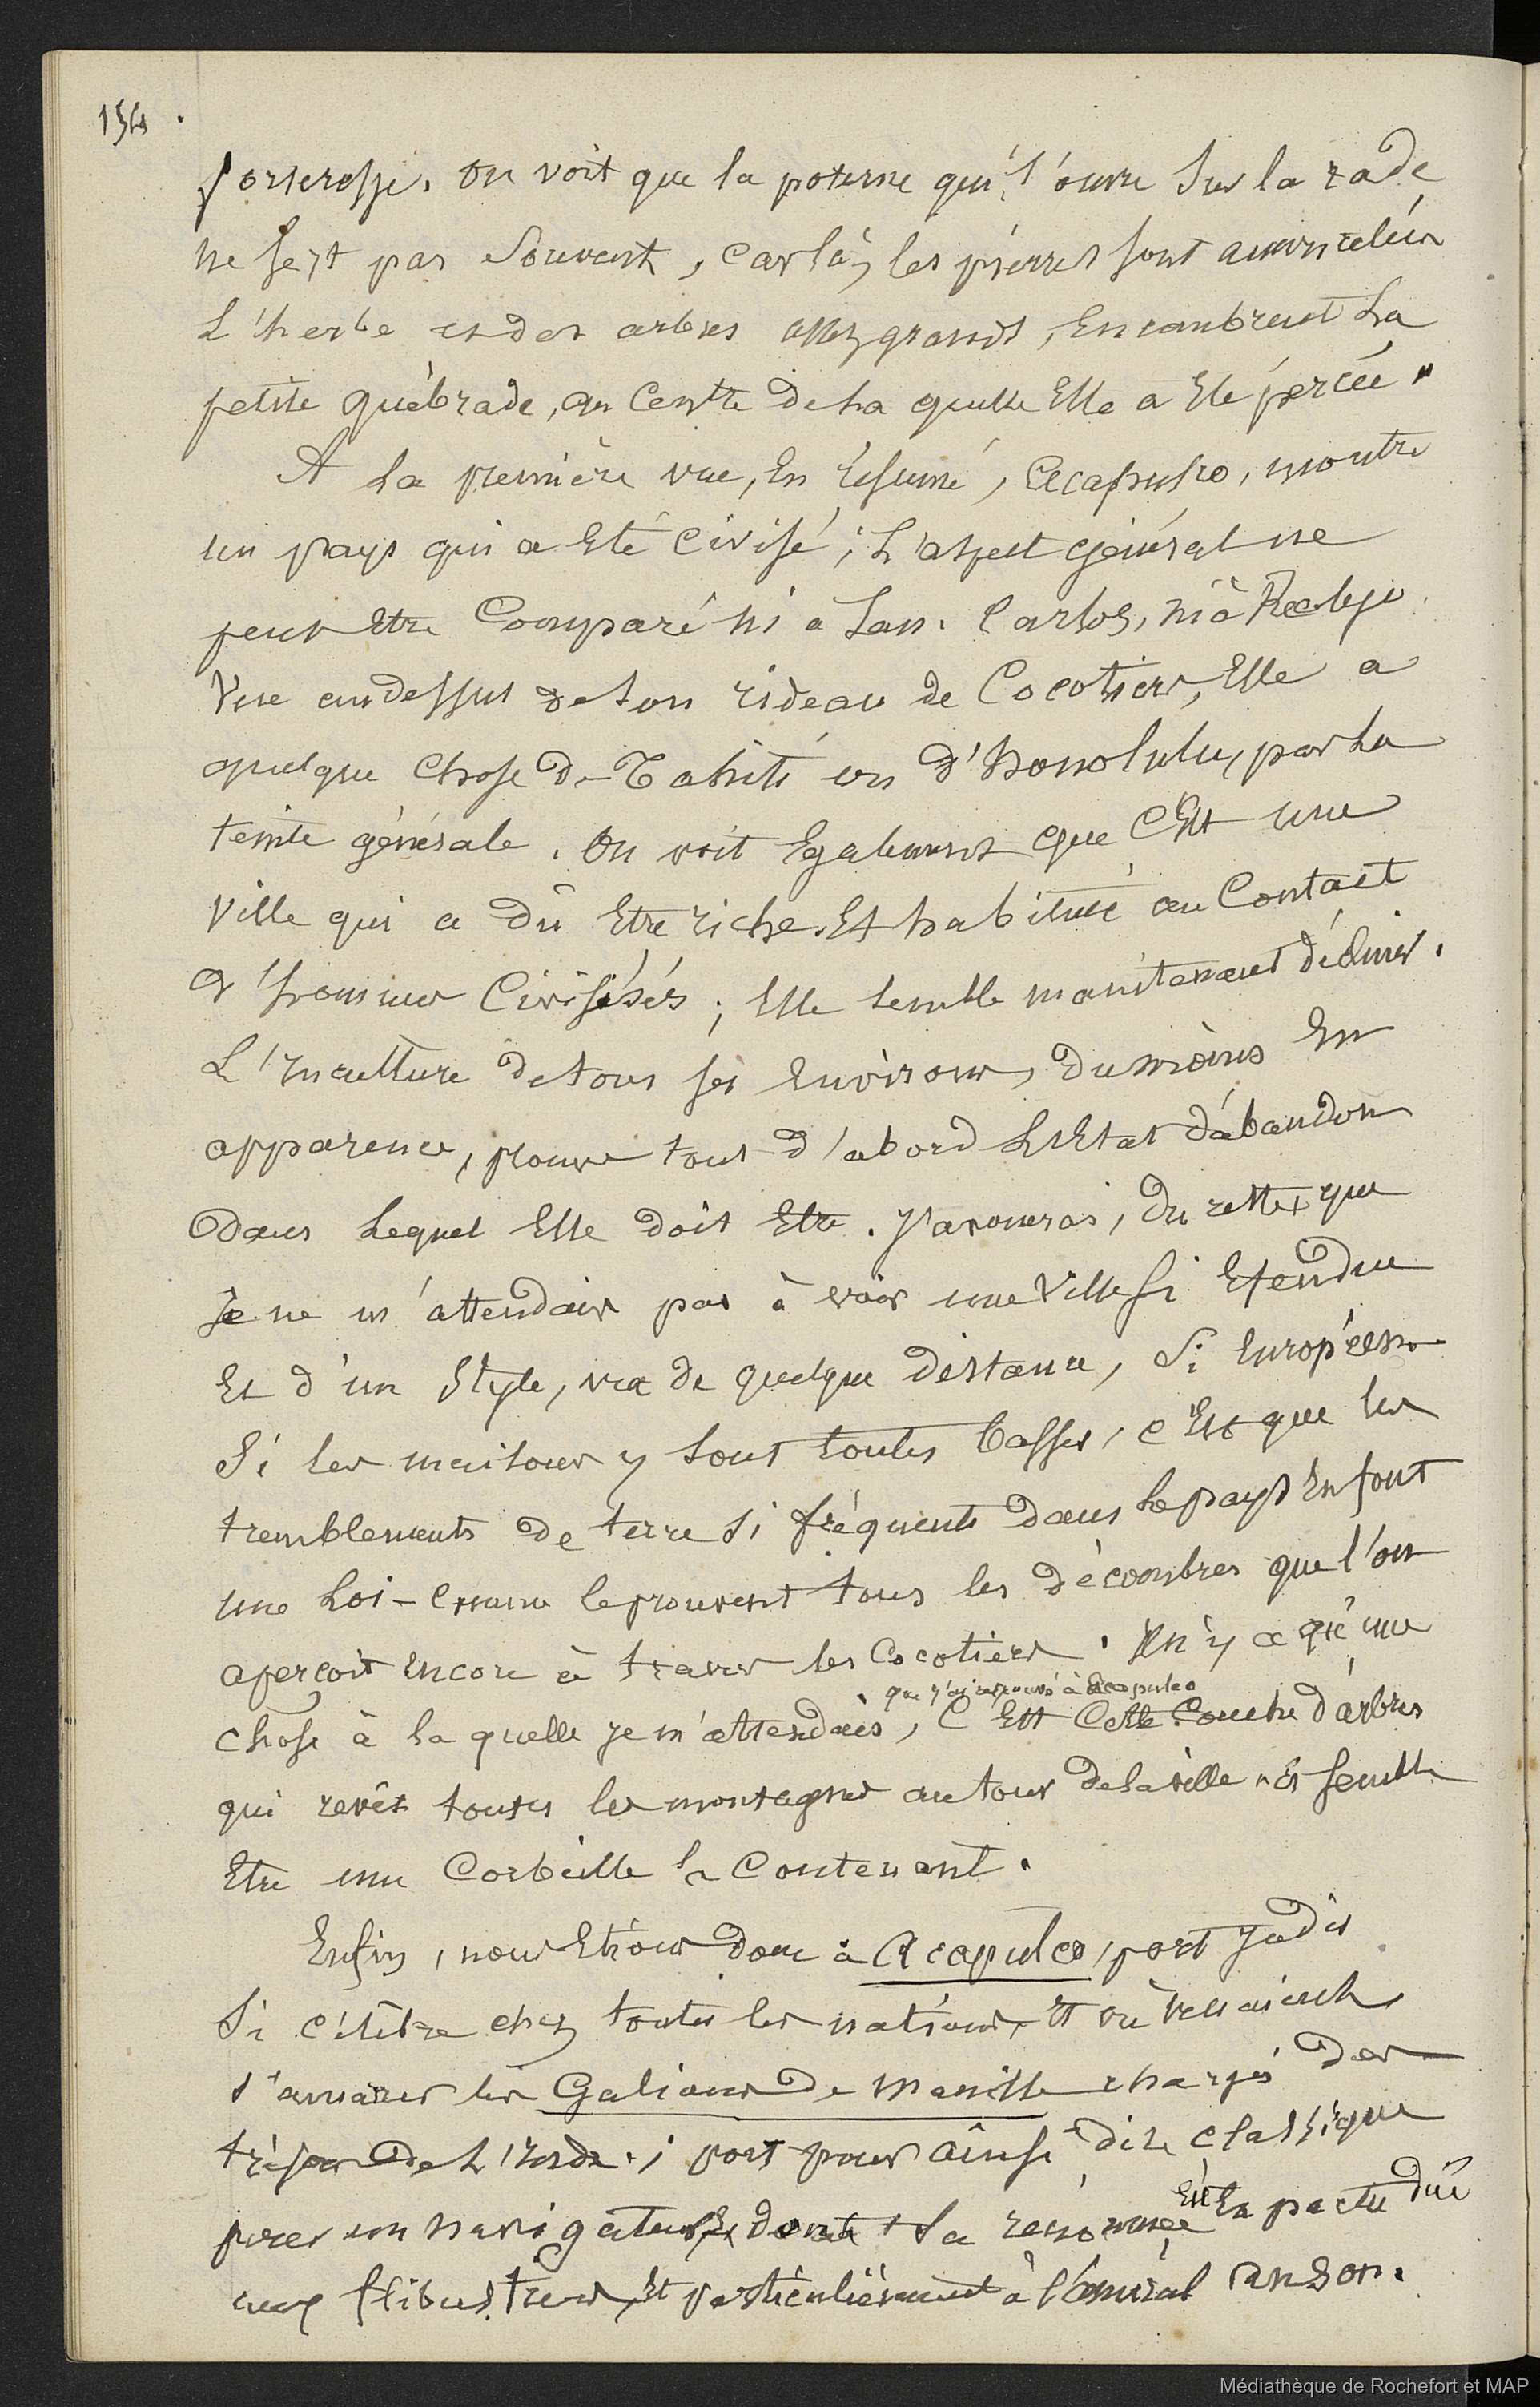 154 .
forteresse. On voit que la poterne qui s'ouvre sur la rade
ne sert pas souvent, car là, les pierres sont amoncelées
L'herbe et des arbres assez grands, Encombrent La
petite quebrade, au Centre de La quelle Elle a Eté percée "
A La première vue, En résumé, Acapulco, montre
un pays qui a Eté Civisé ; L'aspect général ne
peut Etre Comparé ni a San. Carlos, ni à Realejo.
Vue audessus de son rideau de Cocotiers, Elle a
quelque Chose De Tahiti ou d'honolulu, par La
teinte générale. On voit Egalement que C'Est une
Ville qui a Dû Etre riche. Et habitué au Contact
d'hommes Civilisés ; Elle semble maintenant décliner.
L'Inculture de tous ses Environs, Dumoins En
apparence, prouve tout d'abord L'Etat d'abandon
Dans Lequel Elle doit Etre. J'avouerai, Du reste, que
Je ne m'attendais pas à voir une Ville si Etendue
Et d'un Style, vue de quelque distance, si Européen
Si les maisons y sont toutes basses, c'Est que les
tremblements de terre si fréquents dans Le pays En font
une Loi - Comme le prouvent tous les décombres que l'on
aperçoit Encore à travers les Cocotiers. Il n'y a qu'une
que j'ai retrouvé à Acapulco
chose à la quelle je m'attendais, C'Est Cette Couche d'arbres
qui revêt toutes les montagnes autour de la ville " Et semble
Etre une Corbeille la Contenant.
Enfin, nous Etions donc à Acapulco, port Jadis
Si célèbre chez toutes les nations, Et où venaient
s'amarrer les Galions De Manille chargés des
trésors De L'Inde. ; port pour ainsi dire classique
pour un navigateur, Et dont La renommée Est En partie dûe
aux flibustiers, Et particulièrement à l'amiral Anson.
Médiathèque de Rochefort et MAP